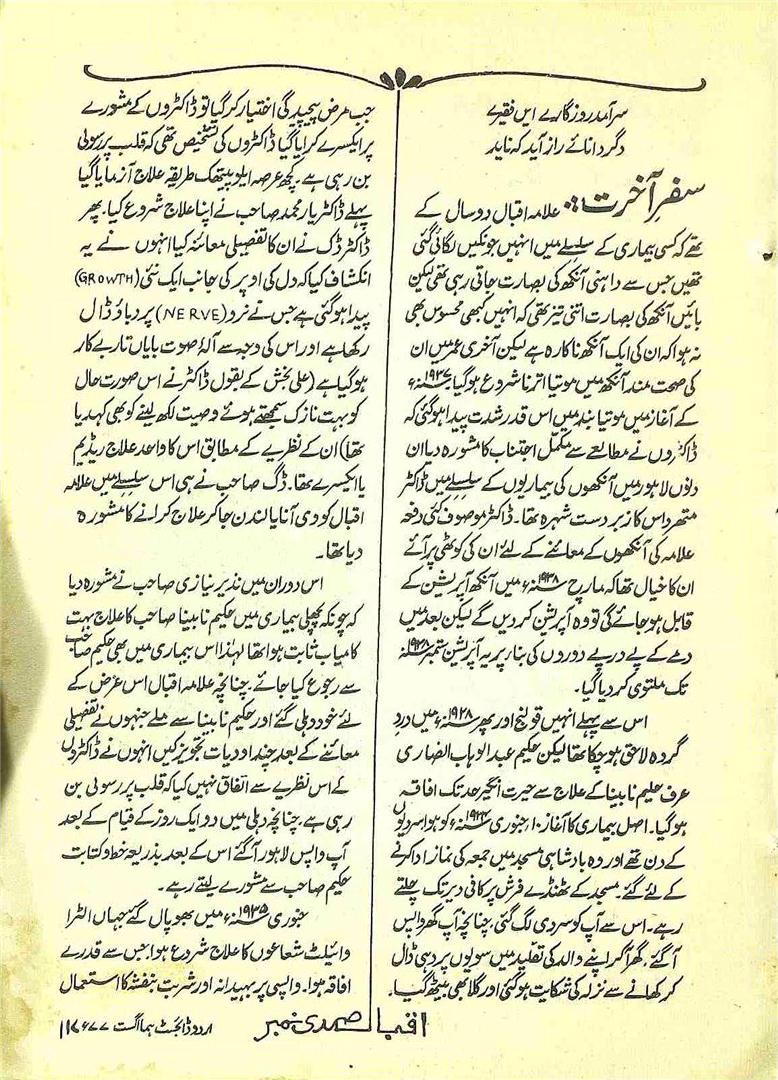 سرآمد روزگارے ایں فقیرے
دگر دانائے راز آید کہ ناید
سفرِ آخرت:۔ علامہ اقبال دو سال کے
تھے کہ کسی بیماری کے سلسلے میں انہیں جونکیں لگائی گئی
تھیں جس سے داہنی آنکھ کی بصارت جاتی رہی تھی لیکن
بائیں آنکھ کی بصارت اتنی تیز تھی کہ انہیں کبھی محسوس بھی
نہ ہوا کہ ان کی ایک آنکھ ناکارہ ہے لیکن آخری عمر میں ان
کی صحت مند آنکھ میں موتیا اترنا شروع ہو گیا ۱۹۳۷ء
کے آغاز میں موتیا بند میں اس قدر شدت پیدا ہو گئی کہ
ڈاکٹروں نے مطالعے سے مکمل اجتناب کا مشورہ دیا ان
دنوں لاہور میں آنکھوں کی بیماریوں کے سلسلے میں ڈاکٹر
متھرداس کا زبردست شہرہ تھا۔ ڈاکٹر موصوف کئی دفعہ
علامہ کی آنکھوں کے معائنے کے لئے ان کی کوٹھی پر آئے
ان کا خیال تھا کہ مارچ ۱۹۳۸ء میں آنکھ آپریشن کے
قابل ہو جائے گی تو وہ آپریشن کر دیں گے لیکن بعد میں
دمے کے پے در پے دوروں کی بنا پر یہ آپریشن ستمبر ۱۹۳۸ء
تک ملتوی کر دیا گیا۔
اس سے پہلے انہیں قولنج اور پھر ۱۹۲۸ء میں دردِ
گردہ لاحق ہو چکا تھا لیکن حکیم عبدالوہاب انصاری
عرف حکیم نابینا کے علاج سے حیرت انگیز حد تک افاقہ
ہو گیا۔ اصل بیماری کا آغاز ۱۰؍ جنوری ۱۹۳۴ء کو ہوا سردیوں
کے دن تھے اور وہ بادشاہی مسجد میں جمعہ کی نماز ادا کرنے
کے لئے گئے۔ مسجد کے ٹھنڈے فرش پر کافی دیر تک چلتے
رہے۔ اس سے آپ کو سردی لگ گئی، چنانچہ آپ گھر واپس
آ گئے۔ گھر آ کر اپنے والد کی تقلید میں سویوں پر دہی ڈال
کر کھانے سے نزلہ کی شکایت ہو گئی اور گلا بھی بیٹھ گیا۔
جب مرض پیچیدگی اختیار کر گیا تو ڈاکٹروں کے مشورے
پر ایکسرے کرایا گیا ڈاکٹروں کی تشخیص تھی کہ قلب پر رسولی
بن رہی ہے۔ کچھ عرصہ ایلوپیتھک طریقہ علاج آزمایا گیا
پہلے ڈاکٹر یار محمد صاحب نے اپنا علاج شروع کیا۔ پھر
ڈاکٹر ڈک نے ان کا تفصیلی معائنہ کیا انہوں نے یہ
انکشاف کیا کہ دل کی اوپر کی جانب ایک نئی (GROWTH)
پیدا ہو گئی ہے جس نے نرو (NERVE) پر دباؤ ڈال
رکھا ہے اور اس کی وجہ سے آلۂ صوت بایاں تار بے کار
ہو گیا ہے (علی بخش کے بقول ڈاکٹر نے اس صورت حال
کو بہت نازک سمجھتے ہوئے وصیت لکھ لینے کو بھی کہہ دیا
تھا) ان کے نظریے کے مطابق اس کا واحد علاج ریڈیم
یا ایکسرے تھا۔ ڈگ صاحب نے ہی اس سلسلے میں علامہ
اقبال کو وی آنا یا لندن جا کر علاج کرانے کا مشورہ
دیا تھا۔
اس دوران میں نذیر نیازی صاحب نے مشورہ دیا
کہ چونکہ پچھلی بیماری میں حکیم نابینا صاحب کا علاج بہت
کامیاب ثابت ہوا تھا لہٰذا اس بیماری میں بھی حکیم صاحب
سے رجوع کیا جائے۔ چنانچہ علامہ اقبال اس غرض کے
لئے خود دہلی گئے اور حکیم نابینا سے ملے جنہوں نے تفصیلی
معائنے کے بعد چند ادویات تجویز کیں انہوں نے ڈاکٹروں
کے اس نظریے سے اتفاق نہیں کیا کہ قلب پر رسولی بن
رہی ہے۔ چنانچہ دہلی میں دو ایک روز کے قیام کے بعد
آپ واپس لاہور آ گئے اس کے بعد بذریعہ خط و کتابت
حکیم صاحب سے مشورے لیتے رہے۔
جنوری ۱۹۳۵ء میں بھوپال گئے جہاں الٹرا
وائیلٹ شعاعوں کا علاج شروع ہوا، جس سے قدرے
افاقہ ہوا۔ واپسی پر بہیدانہ اور شربت بنفشہ کا استعمال
اقبال صدی نمبر
اردو ڈائجسٹ ہما اگست ۷۷ء